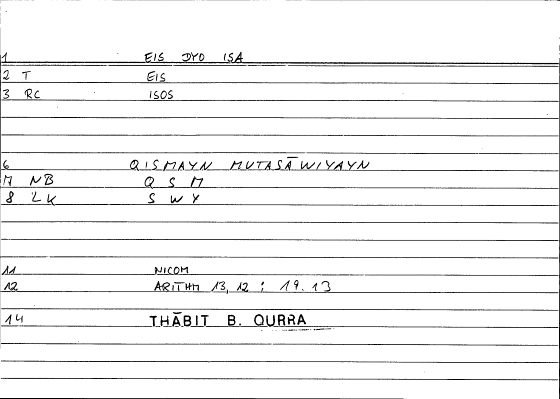 1 EIS DYO ISA
2 T EIS
3 RC ISOS
6 QISMAYN MUTASĀWIYAYN
7 NB Q S M
8 LK S W Y
11 NICOM
12 ARITHM 13, 12 ; 19. 13
14 THĀBIT B. QURRA